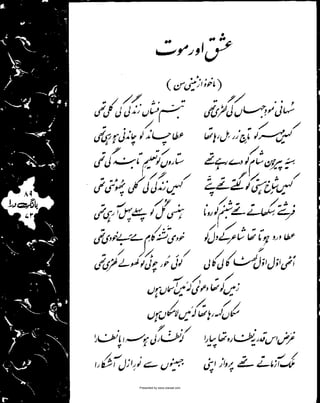 عشق اور موت
(ماخوذ از ٹینی سن)
سُہانی نمودِ جہاں کی گھڑی تھی
تبسم فشاں زندگی کی کلی تھی
کہیں مہر کو تاجِ زر مل رہا تھا
عطا چاند کو چاندنی ہو رہی تھی
سیہ پیرہن شام کو دے رہے تھے
ستاروں کو تعلیمِ تابندگی تھی
کہیں شاخِ ہستی کو لگتے تھے پتے
کہیں زندگی کی کلی پھوٹتی تھی
فرشتے سکھاتے تھے شبنم کو رونا
ہنسی گل کو پہلے پہل آ رہی تھی
عطا درد ہوتا تھا شاعر کے دل کو
خودی تشنہ کامِ مئے بے خودی تھی
اٹھی اول اول گھٹا کالی کالی
کوئی حور چوٹی کو کھولے کھڑی تھی
زمیں کو تھا دعویٰ کہ میں آسماں ہوں
مکاں کہہ رہا تھا کہ میں لامکاں ہوں
غرض اس قدر یہ نظارہ تھا پیارا
کہ نظارگی ہو سراپا نظارا
ملک آزماتے تھے پرواز اپنی
جبینوں سے نورِ ازل آشکارا
۸۹
بانگِ درا
۷۳
Presented by www.ziaraat.com